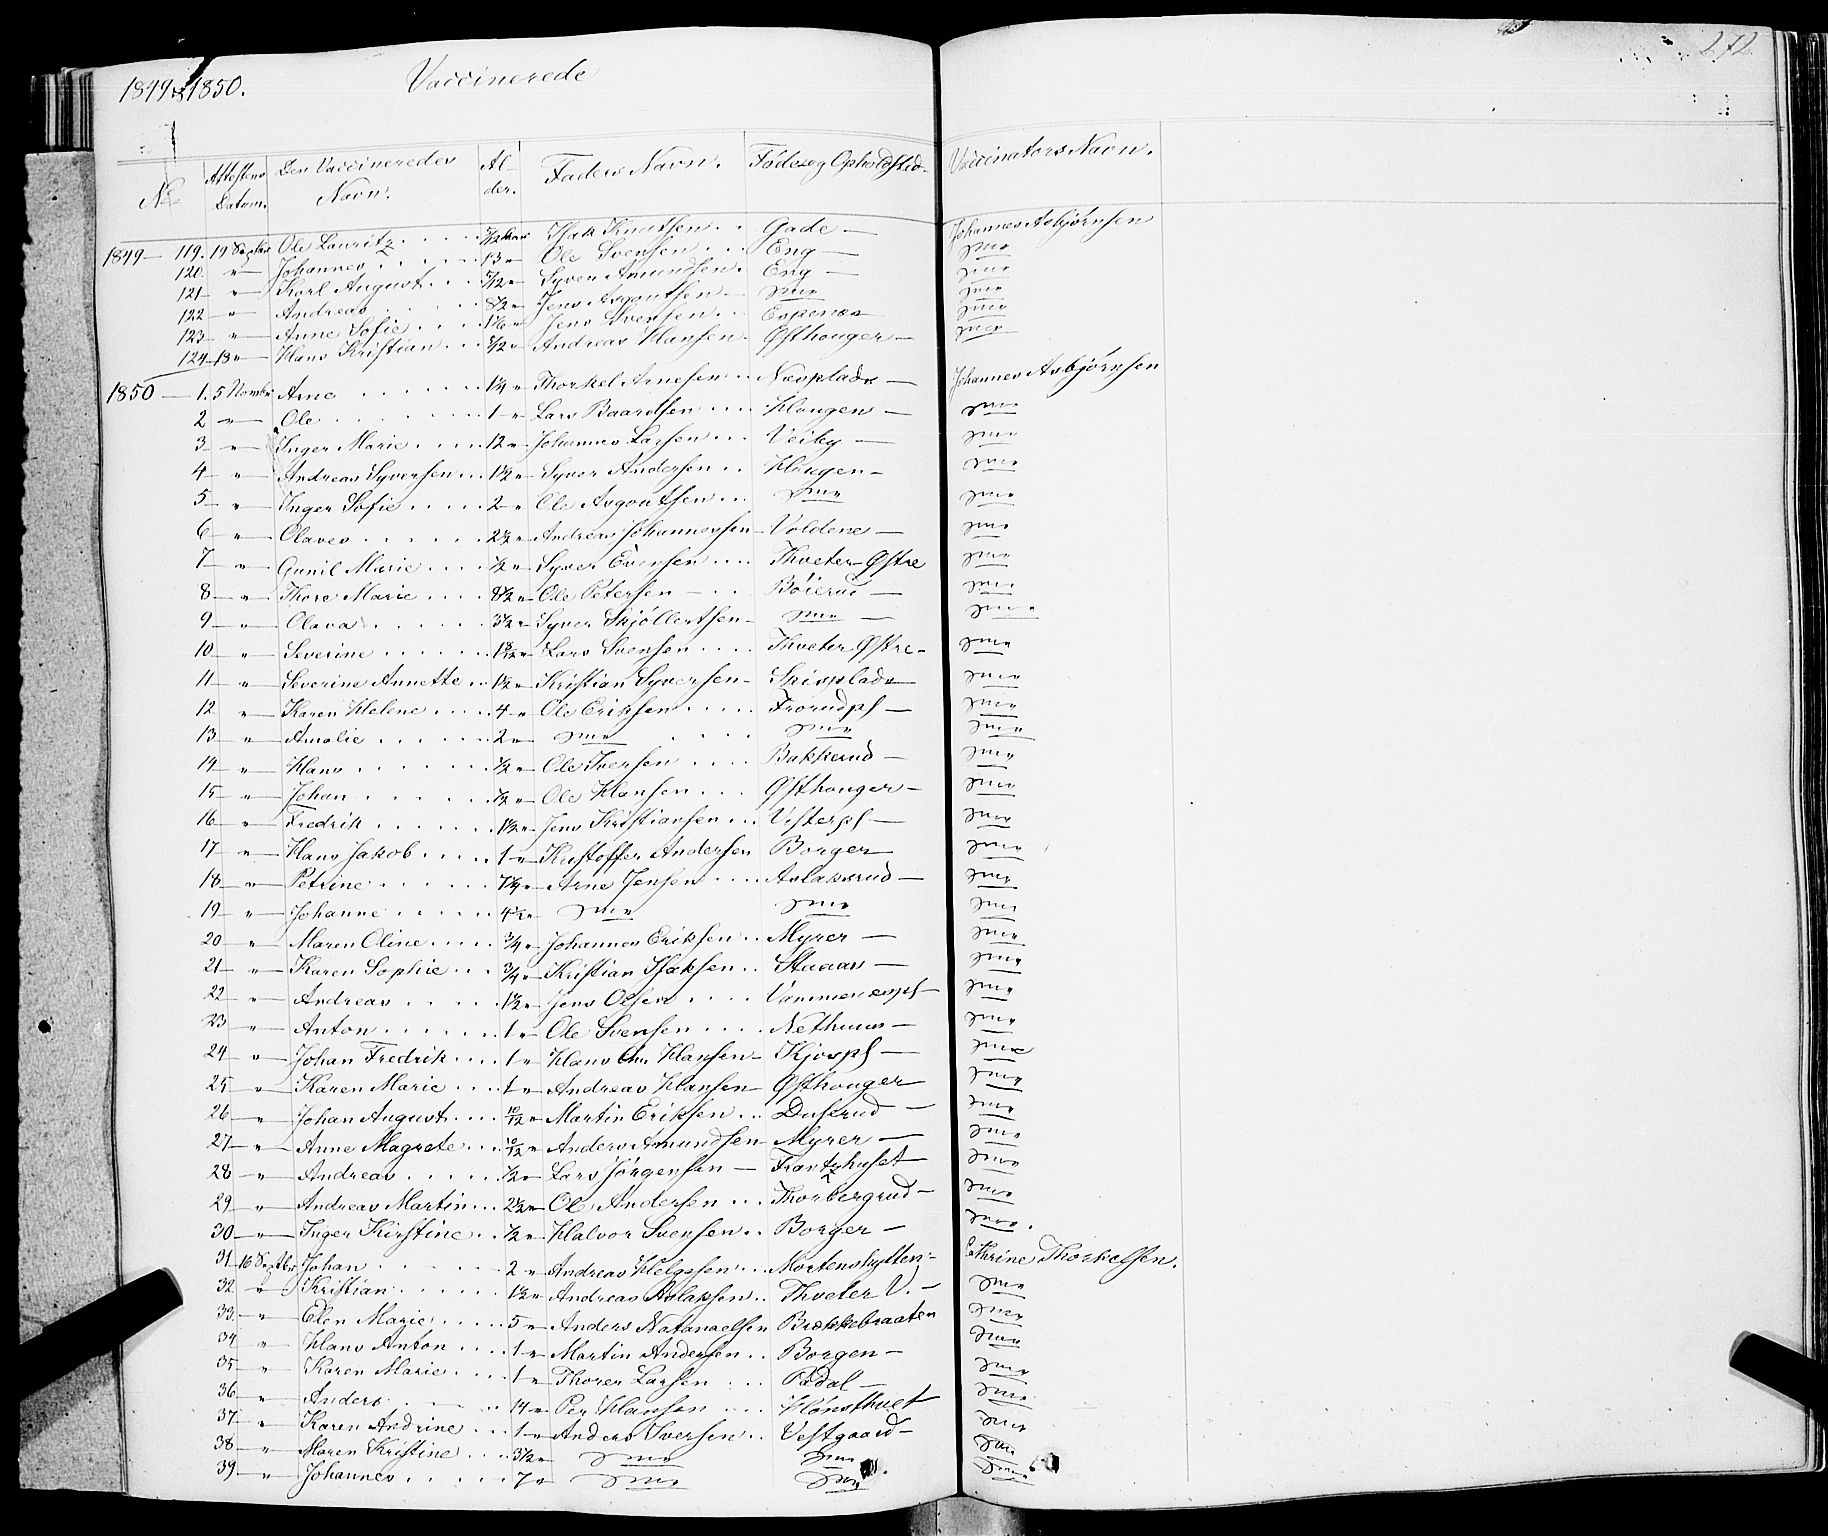 1849 & 1850. Vaccinerede 272
No Attestens Datum. Den Vaccineredes Navn. Alder. Faders Navn. Føde og Opholdsted. Vaccinators Navn.
1849 — 119. 19 Septbr Ole Lauritz Isak Knudsen Gade — Johannes Asbjørnsen
120 " Johannes 13 " Ole Svensen Eng — dmo
121 " Karl August 5/12 " Syver Amundsen Eng — dmo
122 " Andreas 8/12 " Jens Asgoutsen dmo dmo
123 " Anne Sofie Jens Svensen Espenes dmo
124 13 " Hans Kristian Andreas Hansen Østhouger — dmo
1850 — 1. 5 Novmbr Arne 1 1/4 " Thorkel Arnesen Næsplads — Johannes Asbjørnsen
2 " Ole 1 " Lars Baardsen Hougen — dmo
3 " Inger Marie 12 " Johannes Larsen Veiby — dmo
4 " Andreas Syversen 1 1/2 " Syver Andersen Hougen — dmo
5 " Inger Sofie 2 " Ole Asgoutsen dmo dmo
6 " Olaves 2 1/2 " Andreas Johannessen Voldene — dmo
7 " Gunil Marie 1/2 " Syver Evensen Thveter Østre dmo
8 " Thore Marie 8 1/2 " Ole Petersen Böierud — dmo
9 " Olava 3 1/2 " Syver Skjöllertsen dmo — dmo
10 " Severine Lars Svensen Thveter Østre — dmo
11 " Severine Annette 1 1/2 " Kristian Syversen Spisplads dmo
12 " Karen Helene 4 " Ole Eriksen Frorudpl — dmo
13 " Amalie 2 " dmo dmo dmo
14 " Hans 1/2 " Ole Iversen Bakkerud — dmo
15 " Johan 1/2 " Ole Hansen Østhouger — dmo
16 " Fredrik 1 1/2 " Jens Kristiansen Vesterpl — dmo
17 " Hans Jakob 1 " Kristoffer Andersen Borger dmo
18 " Petrine 7 1/4 " Arne Jensen Aslaksrud — dmo
19 " Johanne 4 1/2 " dmo dmo dmo
20 " Maren Oline 3/4 " Johannes Eriksen Myrer — dmo
21 " Karen Sophie 3/4 " Kristian Isaksen Stuaas — dmo
22 " Andreas 1 1/2 " Jens Olsen dmo
23 " Anton 1 " Ole Svensen Nethuus — dmo
24 " Johan Fredrik 1 " Hans Chr Hansen Kjospl — dmo
25 " Karen Marie 1 " Andreas Hansen Østhouger dmo
26 " Johan August 10/12 " Martin Eriksen Duserud — dmo
27 " Anne Magrete 10/12 " Anders Amundsen Myrer — dmo
28 " Andreas 1/2 " Lars Jörgensen Frantzhuset dmo
29 " Andreas Martin 2 1/2 " Ole Andersen Thorbergrud — dmo
30 " Inger Kirstine 1/2 " Halvor Svensen Borger — dmo.
31 16 Septbr Johan 2 " Andreas Helgesen Mortenshytten Cathrine Thorkelsen.
32 " Kristian 1 1/2 " Andreas Aslaksen Thveter V. — dmo
33 " Elen Marie 5 " Anders Natanaelsen Brækkebraaten dmo
34 " Hans Anton 1 " Martin Andersen Borgen — dmo
35 " Karen Marie 1 " Thorer Larsen Rødal — dmo
36 " Anders 14 " Per Hansen Hönsthvet dmo
37 " Karen Andrine 1 " Anders Iversen Vestgaard — dmo
38 " Maren Kristine 3 1/2 " dmo dmo dmo
39 " Johannes 7 " dmo dmo dmo